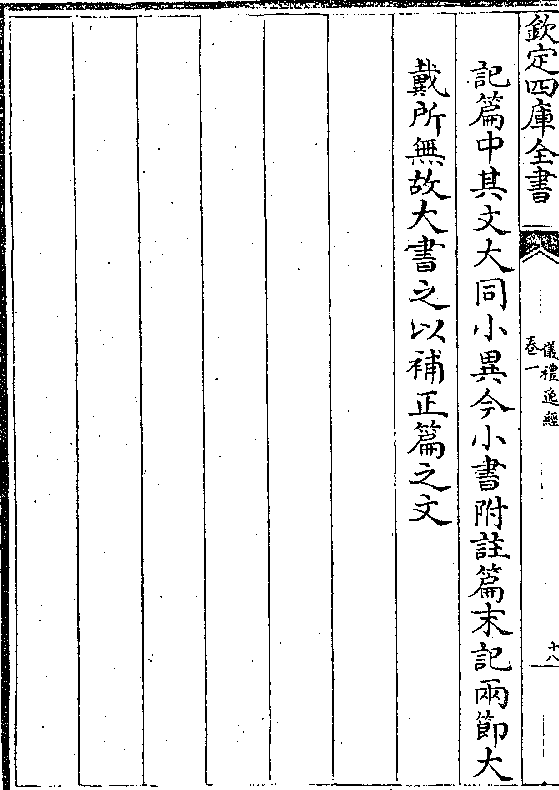 欽定四庫全書
儀禮逸經
卷一
十八
記篇中其文大同小異今小書附註篇末記兩節大
戴所無故大書之以補正篇之文